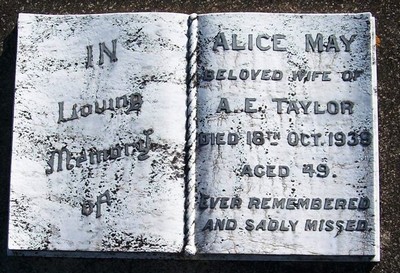 IN
Loving
Memory
of
ALICE MAY
BELOVED WIFE OF
A. E. TAYLOR
DIED 18TH OCT. 1938
AGED 49.
EVER REMEMBERED
AND SADLY MISSED.